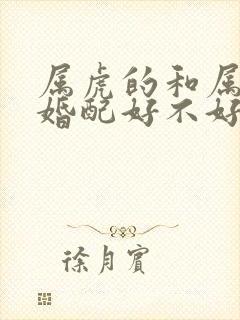 属虎的和属
婚配好不好
徐月宾